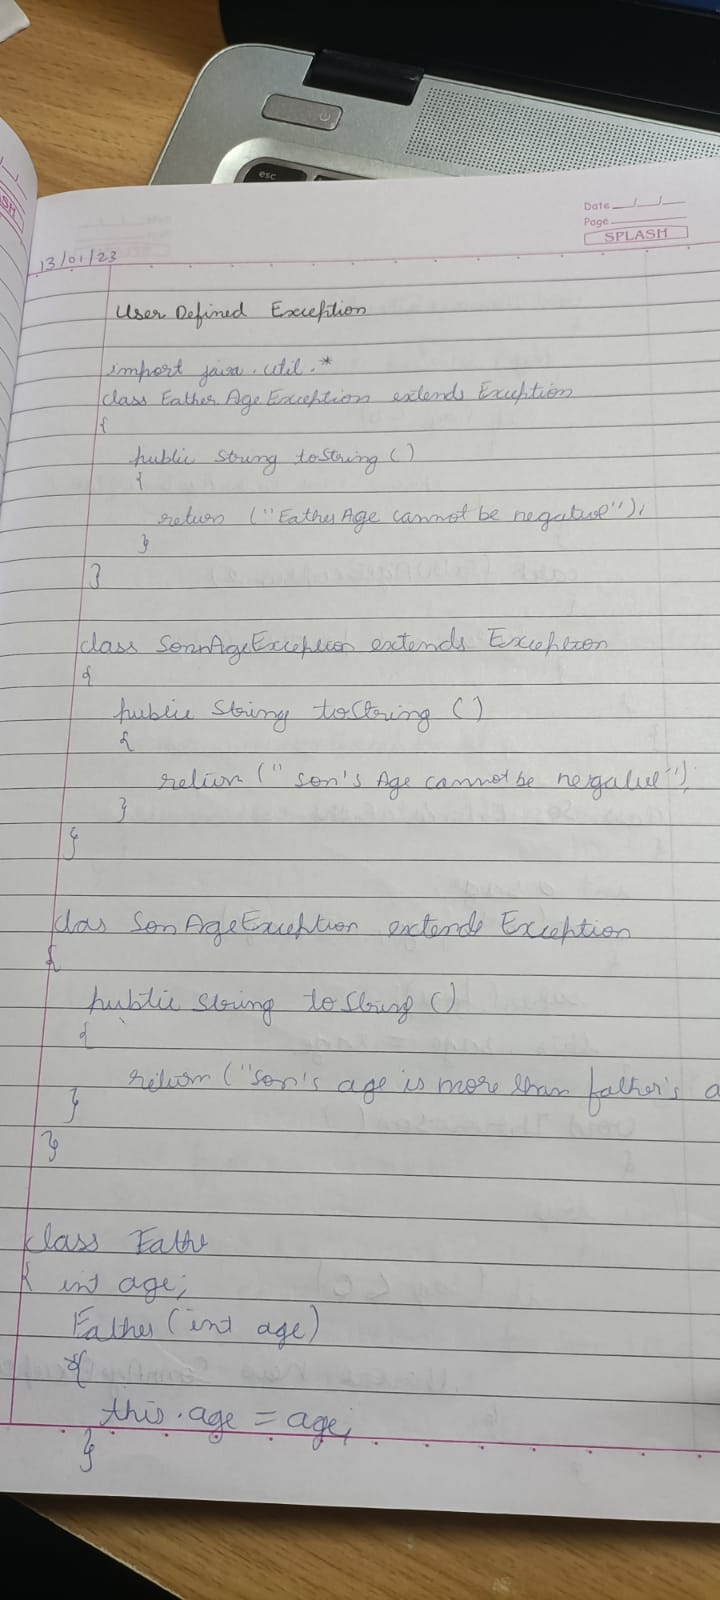 esc
Date
Page
SPLASH
13/01/23
User Defined Exception
import java.util.*
class Father Age Exception extends Exception
{
public String toString ()
{
return ("Father Age cannot be negative");
}
}
class SonnAgeException extends Exception
{
public String toString ()
{
return (" Son's Age cannot be nergative");
}
}
clas Son AgeException extends Exception
{
public String toString ()
{
return ("Son's age is more than father's a
}
}
class Fathe
{ int age;
Father (int age)
{
this.age = age;
}